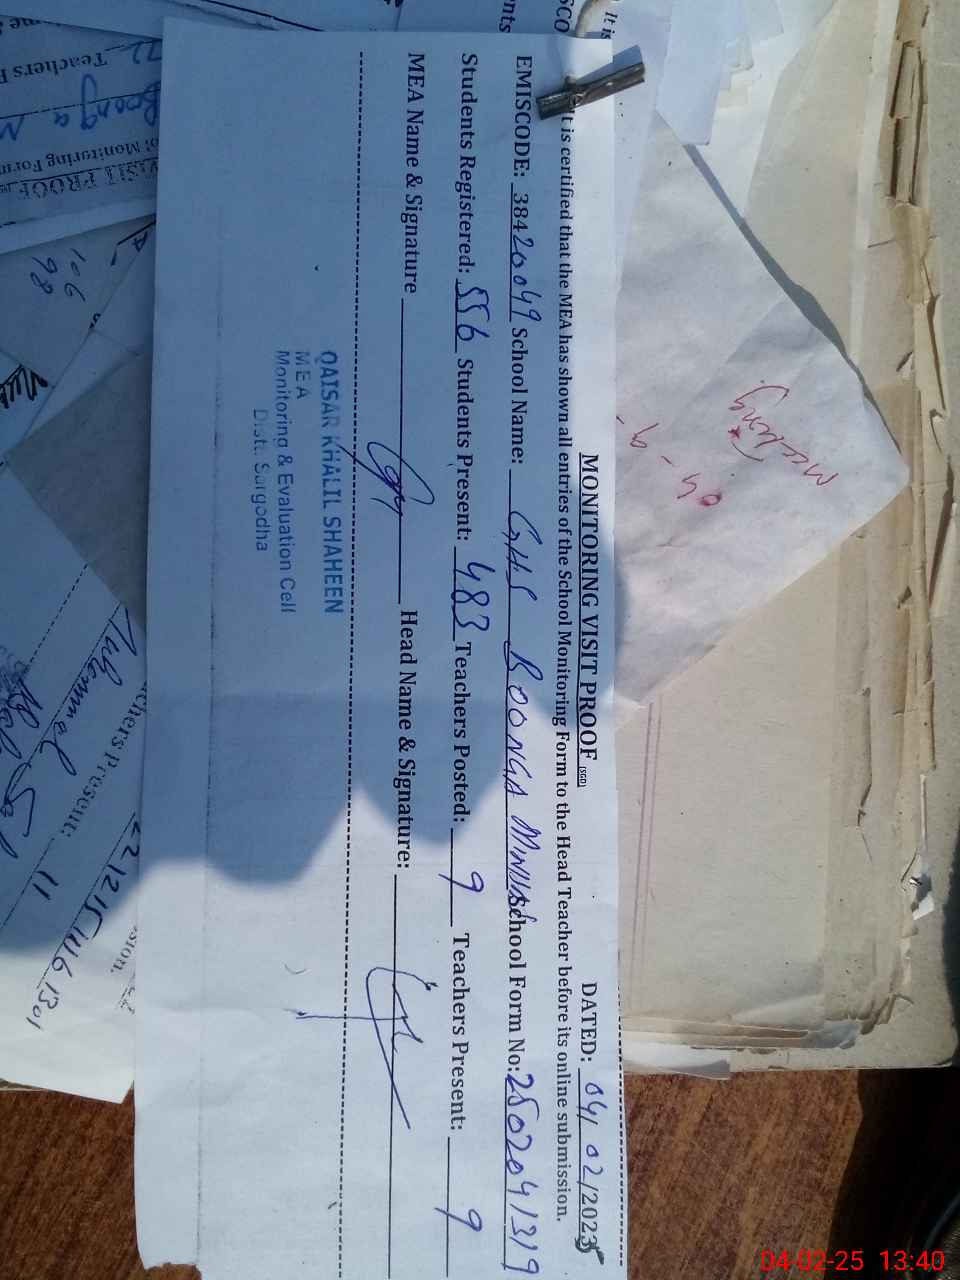 MONITORING VISIT PROOF (SGD) DATED: 04/02/2025
It is certified that the MEA has shown all entries of the School Monitoring Form to the Head Teacher before its online submission.
EMISCODE: 38420049 School Name: GHS BOONGA School Form No: 2502041319
Students Registered: 556 Students Present: 483 Teachers Posted: 9 Teachers Present: 9
MEA Name & Signature Head Name & Signature:
QAISAR KHALIL SHAHEEN
MEA
Monitoring & Evaluation Cell
Distt. Sargodha
meeting
04 - 9 -
It is
SCO
nts
Teachers P
Boonga
ol Monitoring Form
VISIT PROOF
106
98
Teachers Present: 11
04-02-25 13:40